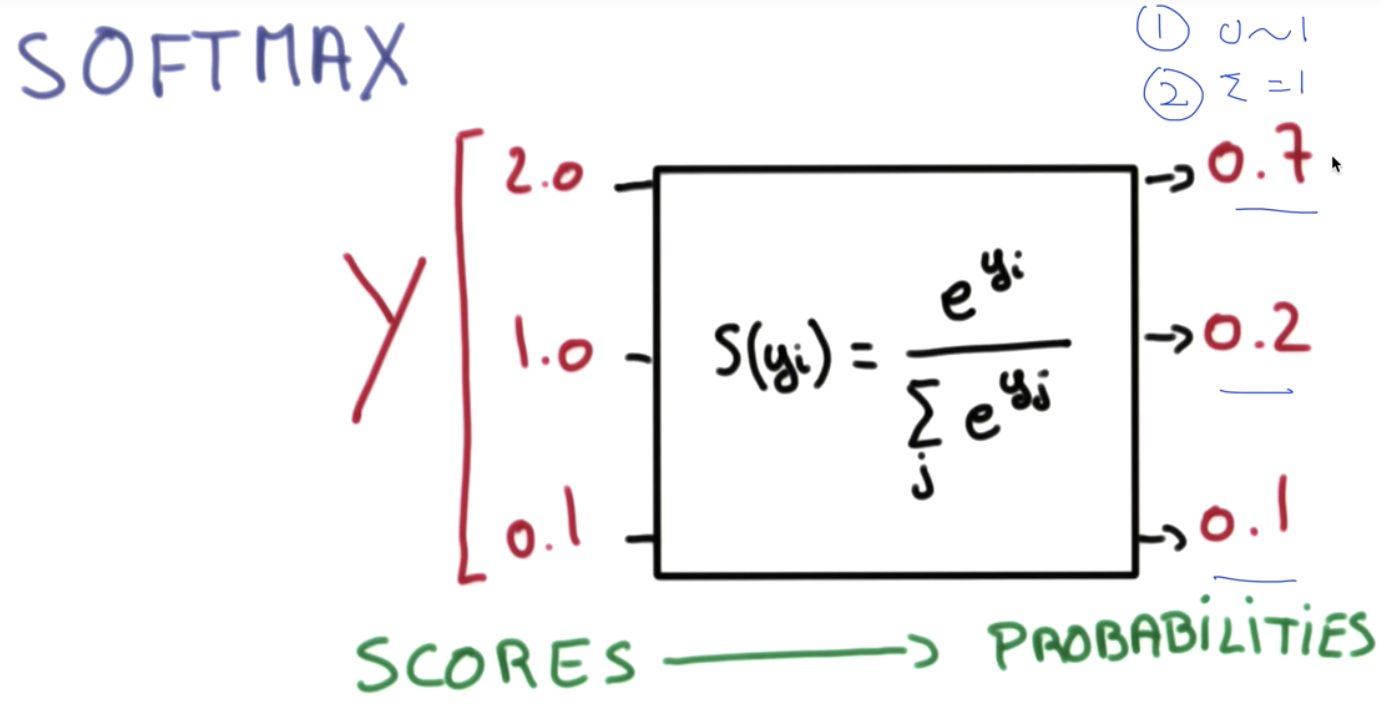 SOFTMAX
① 0~1
② Σ =1
Y
2.0
1.0
0.1
S(yᵢ) = e^yᵢ / Σⱼ e^yⱼ
→ 0.7
→ 0.2
→ 0.1
SCORES → PROBABILITIES